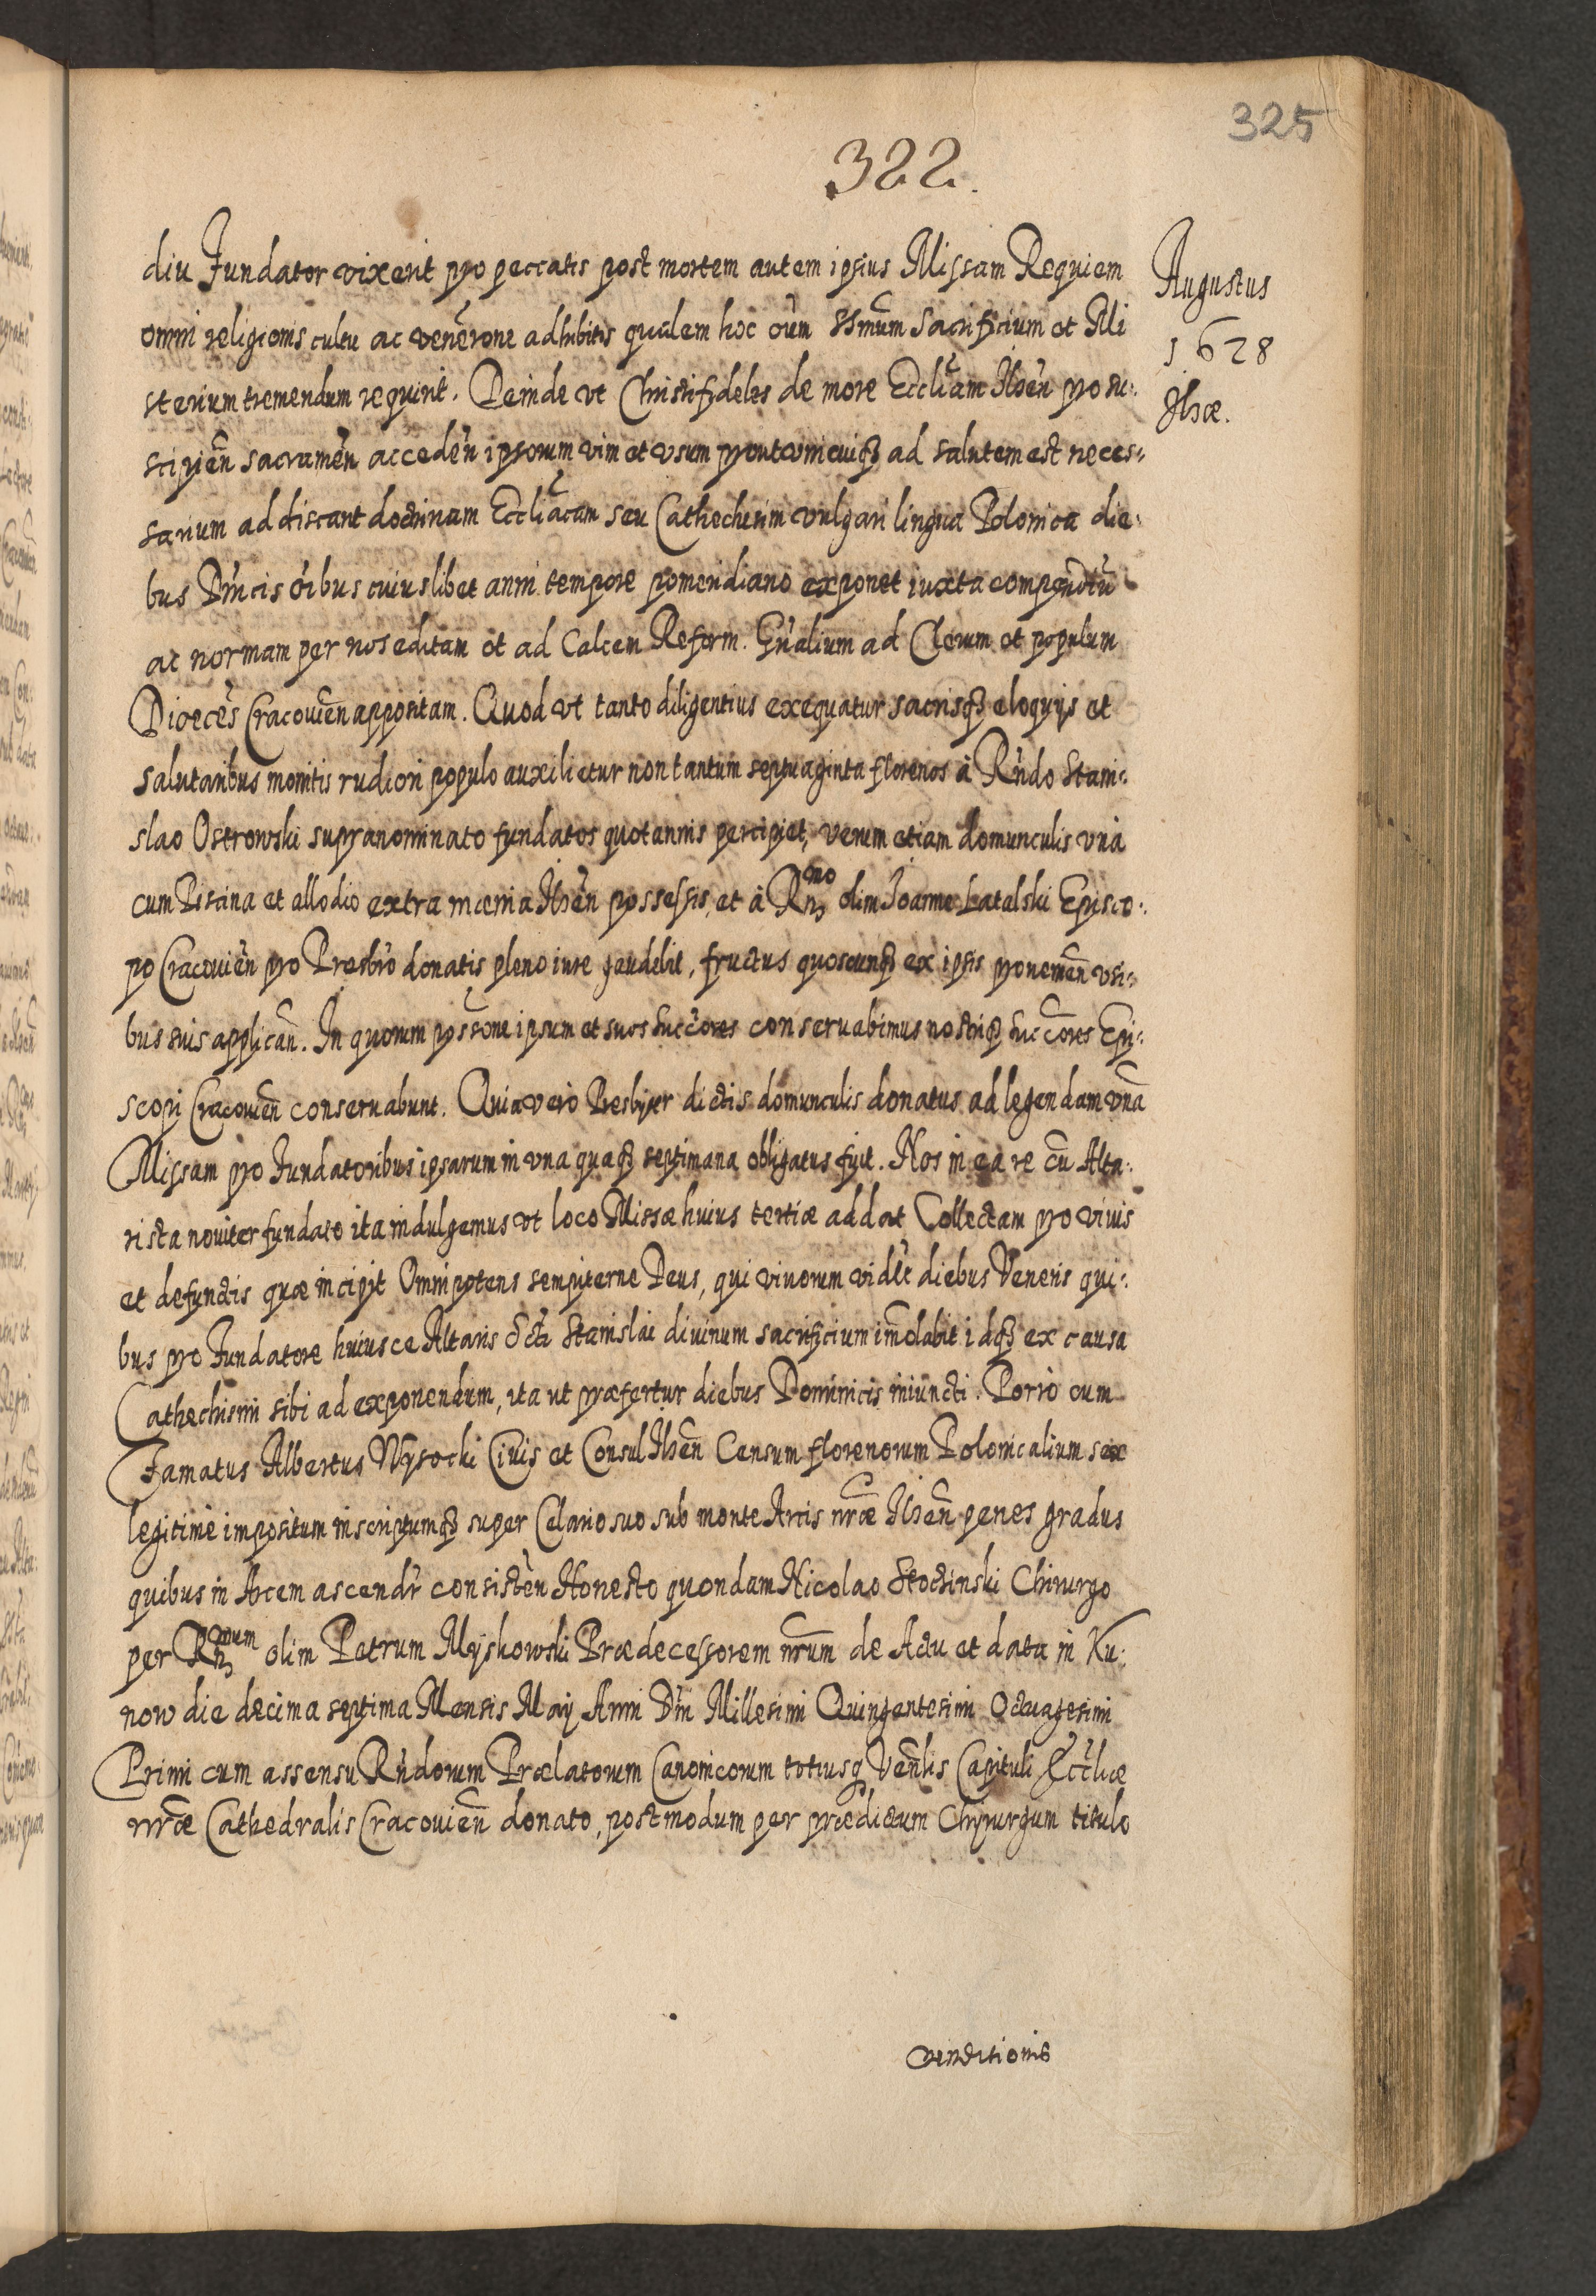 325
322.
diu Fundator vixerit pro peccatis post mortem autem ipsius Missam Requiem
omni religionis cultu ac venerone adhibitis qualem hoc oium SSmum sacrificium et Mi
sterium tremendum requirit. Deinde vt Christifideles de more Eccliam Ilzen pro su-
scipien sacramen acceden ipsorum vim et vsum prout vnicuiqz ad salutem est neces-
sarium addiscant doctrinam Eccliacam seu Cathechesim vulgari lingua Polonica die-
bus Dnicis oibus cuiuslibet anni tempore pomeridiano exponet iuxta compendiu
ac normam per nos editam et ad calcem Reform. Gnalium ad Clerum et populum
Dioeces Cracouien appositam. Quod vt tanto diligentius exequatur sacrisqz eloquijs et
salutaribus monitis rudiori populo auxilietur non tantum septuaginta florenos à Rndo Stani-
slao Ostrowski supranominato fundatos quotannis percipiet, verum etiam domunculis vnà
cum Piscina et allodio extra mœnia Ilzen possessis, et à Rnmo olim Joanne Latalski Episco-
po Cracouien pro Presbro donatis pleno iure gaudebit, fructus quoscunqz ex ipsis prouenien vsi-
bus suis applican. In quorum possone ipsum et suos succores conseruabimus nostriqz succores Epi-
scopi Cracouien conseruabunt. Quia verò Presbyter dictis domunculis donatus ad legendam vna
Missam pro Fundatoribus ipsarum in vna quaqz septimana obligatus fuit. Nos in ea re cu Alta-
rista nouiter fundato ita indulgemus vt loco Missæ huius tertiæ addat Collectam pro viuis
et defunctis quæ incipit Omnipotens sempiterne Deus, qui viuorum videlt diebus Veneris qui-
bus pro Fundatore huiusce Altaris dcti Stanislai diuinum sacrificium imolabit idqz ex causa
Cathechismi sibi ad exponendum, ita ut præfertur diebus Dominicis iniuncti. Porrò cum
Famatus Albertus Wysocki Ciuis et Consul Ilzen Censum florenorum Polonicalium sex
legitimè impositum inscriptumqz super Celario suo sub monte Arcis nræ Ilzen penes gradus
quibus in Arcem ascendr consisten Honesto quondam Nicolao Skoczinski Chirurgo
per Rnmum olim Petrum Myskowski Prædecessorem nrum de Actu et data in Ku-
now die decima septima Mensis Maij Anni Dni Millesimi Quingentesimi Octuagesimi
Primi cum assensu Rndorum Prælatorum Canonicorum totiusqz Venblis Capituli Eccliæ
nræ Cathedralis Cracouien donato, postmodum per prædictum Chirurgum titulo
venditionis
Augustus
1628
Ilzæ.